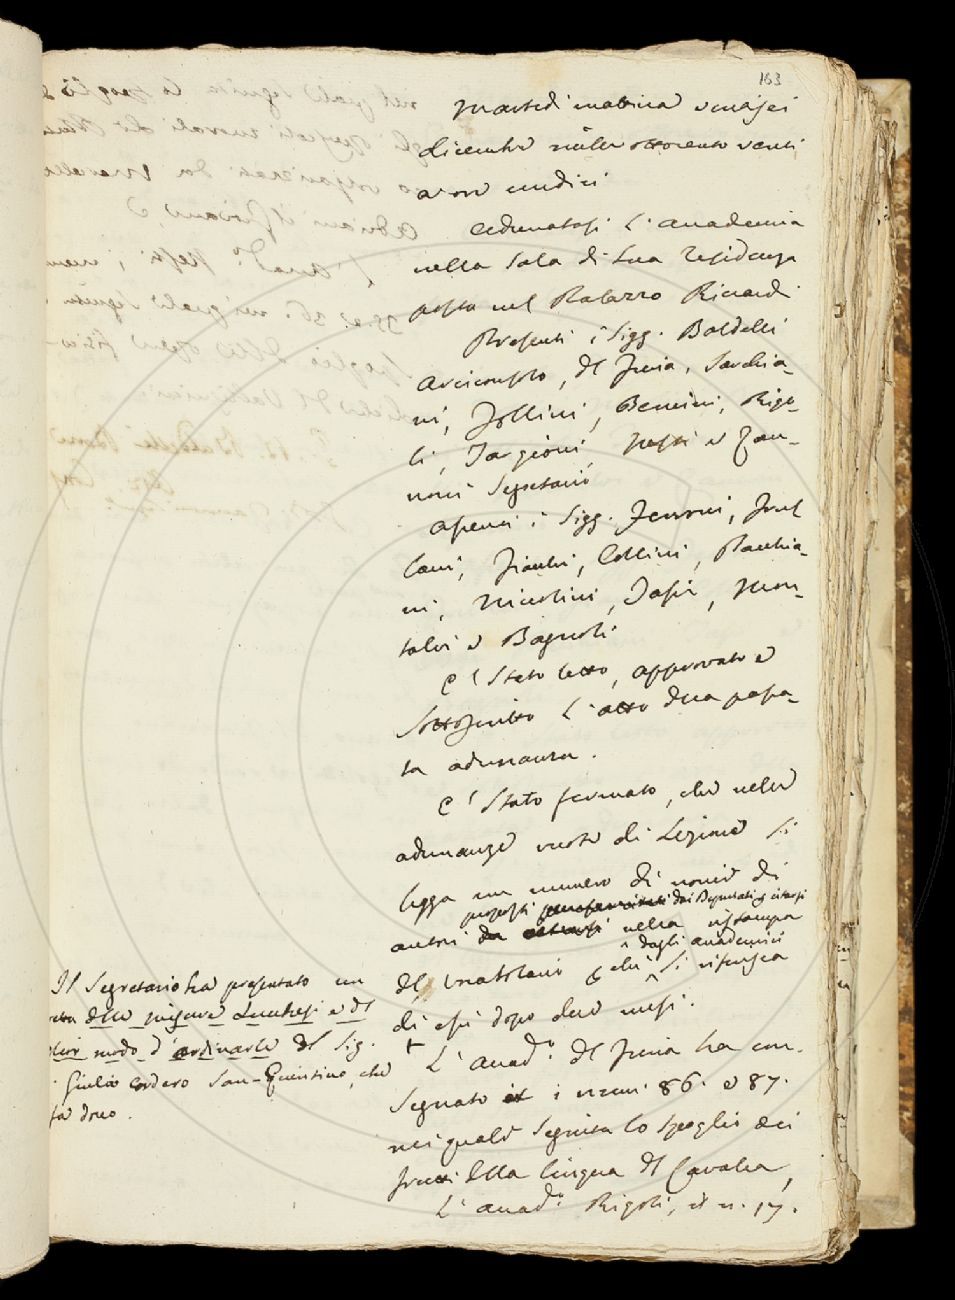 163
Martedì mattina ventisei
dicembre mille ottocento venti
a ore undici
Adunatasi l'Accademia
nella Sala di sua residenza
posta nel Palazzo Riccardi
Presenti i Sigg. Baldelli
Arciconsolo, del Furia, Sarchia-
ni, Follini, Bencini, Rigo-
li, Targioni, Nesti e Zan-
noni Segretario
Assenti i Sigg. Ferroni,
lani, Fiacchi, Collini, Pacchia-
ni, Niccolini, Mon-
talvi e Bagnoli
E' stato letto, approvato e
Sottoscritto l'atto della passa-
ta adunanza.
E' stato fermato, che nelle
adunanze vuote di Lezione si
legga un numero di nomi di
autori proposti dai Deputati p citarsi nella ristampa
del Vocabolario e che dagli accademici si riferisca
di essi dopo due mesi.
+
L'Accad.o del Furia ha con-
segnato i num. 86. e 87.
nei quali seguita lo spoglio dei
frutti della lingua del Cavalca,
L'Accad.o Rigoli, il n. 17.
Il Segretario ha presentato un
delle misure Lucchesi e del
modo d'ordinarle del Sig.
Giulio Cordero San-Quintino, che
fa dono.